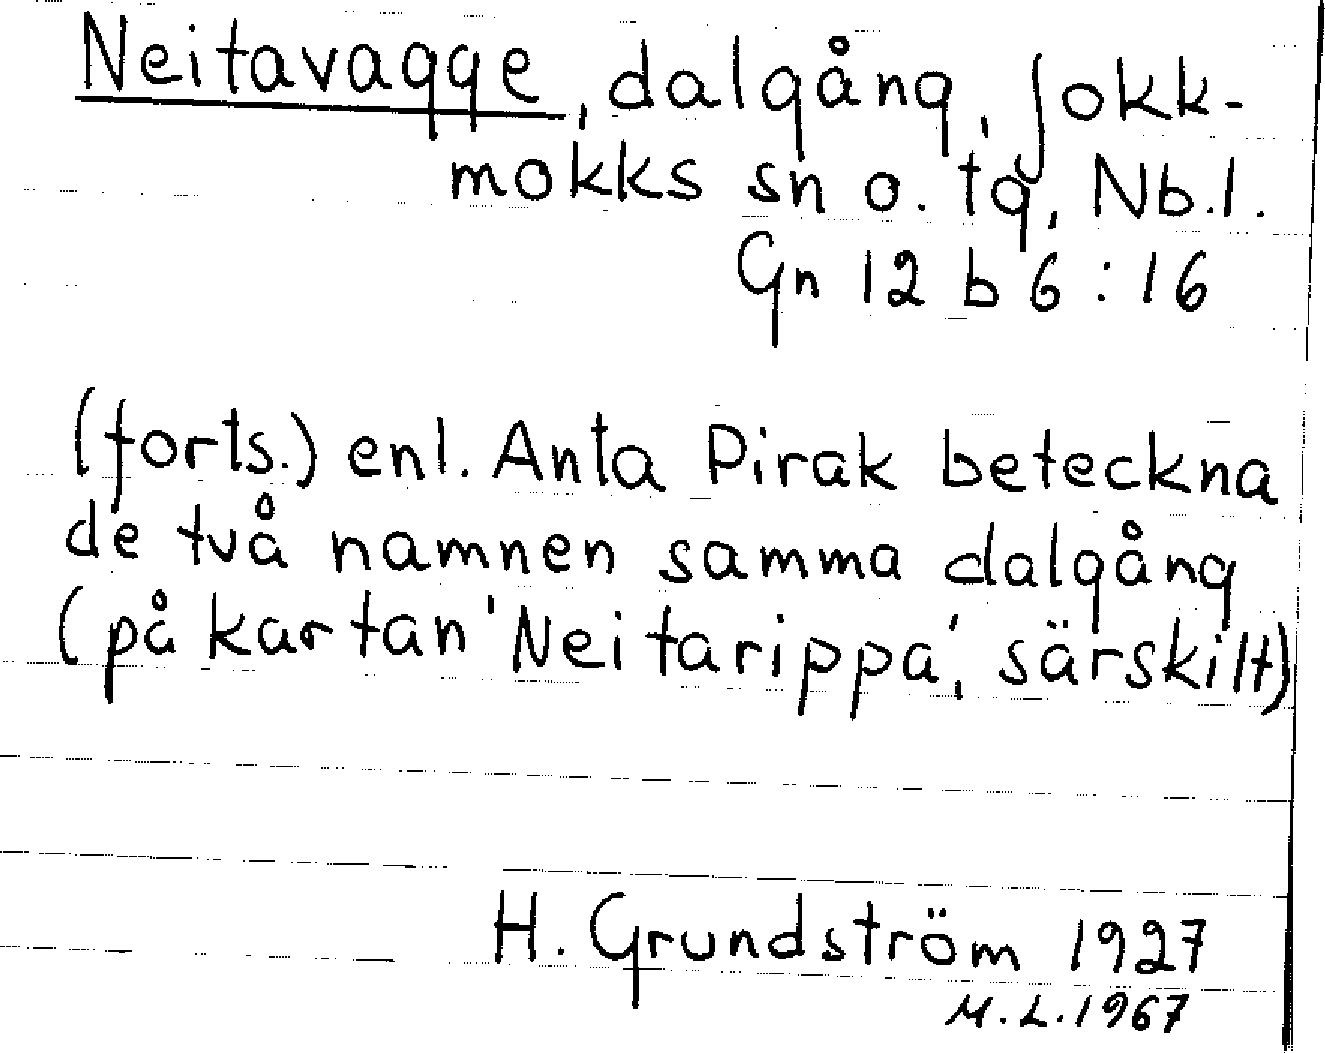 Neitavagge, dalgång, Jokk-
mokks sn o. tg, Nb.l.
Gn 12 b 6:16
(forts.) enl. Anta Pirak beteckna
de två namnen samma dalgång
(på kartan 'Neitarippa', särskilt)
H. Grundström 1927
M.L.1967